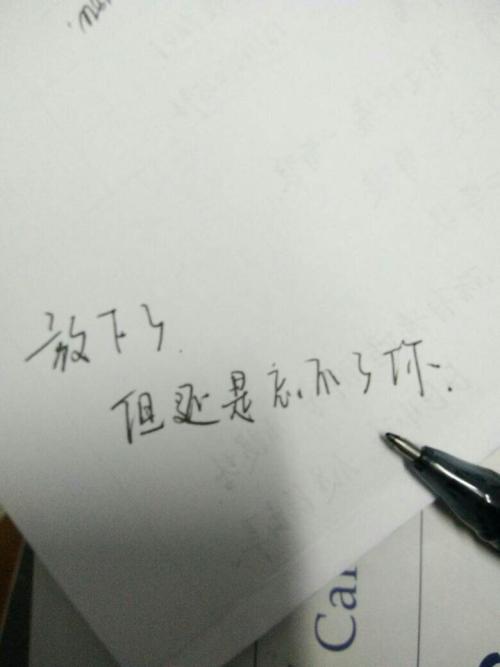 放下了.
但还是忘不了你.
Cal